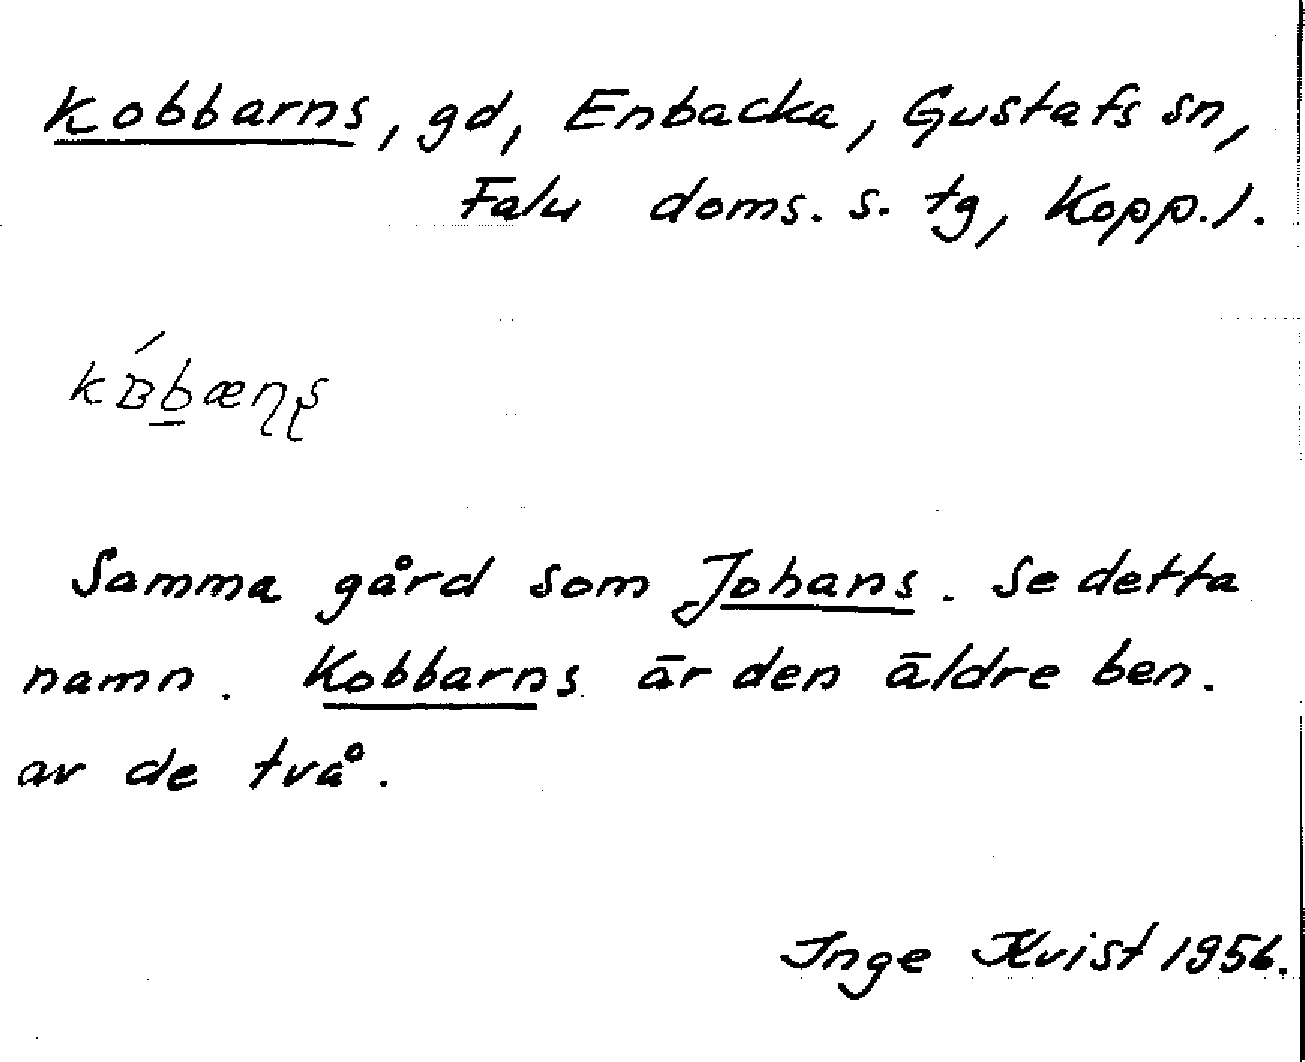 Kobbarns, gd, Enbacka, Gustafs sn,
Falu doms. s. tg, Kopp. l.
Samma gård som Johans. Se detta
namn. Kobbarns är den äldre ben.
av de två.
Inge Kvist 1956.